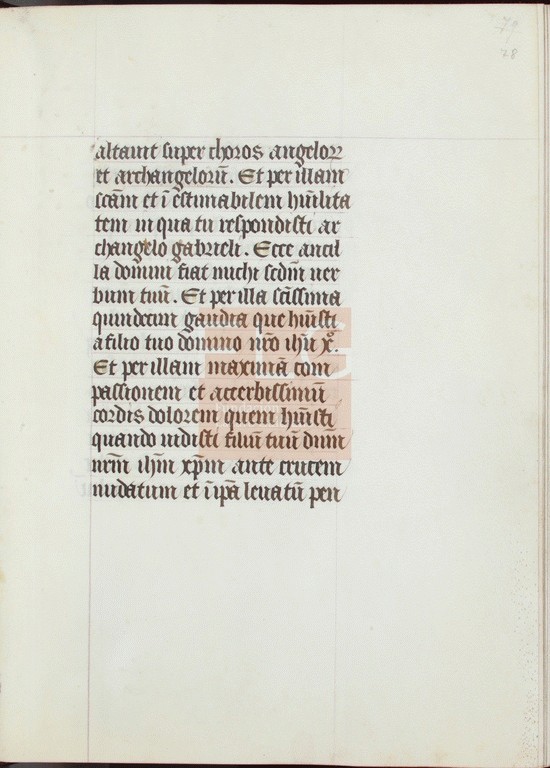 79
78
altauit super choros angeloꝝ
et archangeloꝝ. Et per illam
scām et ī estimabilem hūilita
tem in qua tu respondisti ar
changelo gabrieli. Ecce ancil
la domini fiat michi scdm̄ uer
bum tuū. Et per illa scīssima
quindecim gaudia que hūisti
a filio tuo domino nr̄o ih̄u xº.
Et per illam maximā com
passionem et accerbissimū
cordis dolorem quem hūisti
quando uidisti filiū tuū dn̄m
nr̄m ih̄m xp̄m ante crucem
nudatum et ī ip̄a leuatū pen